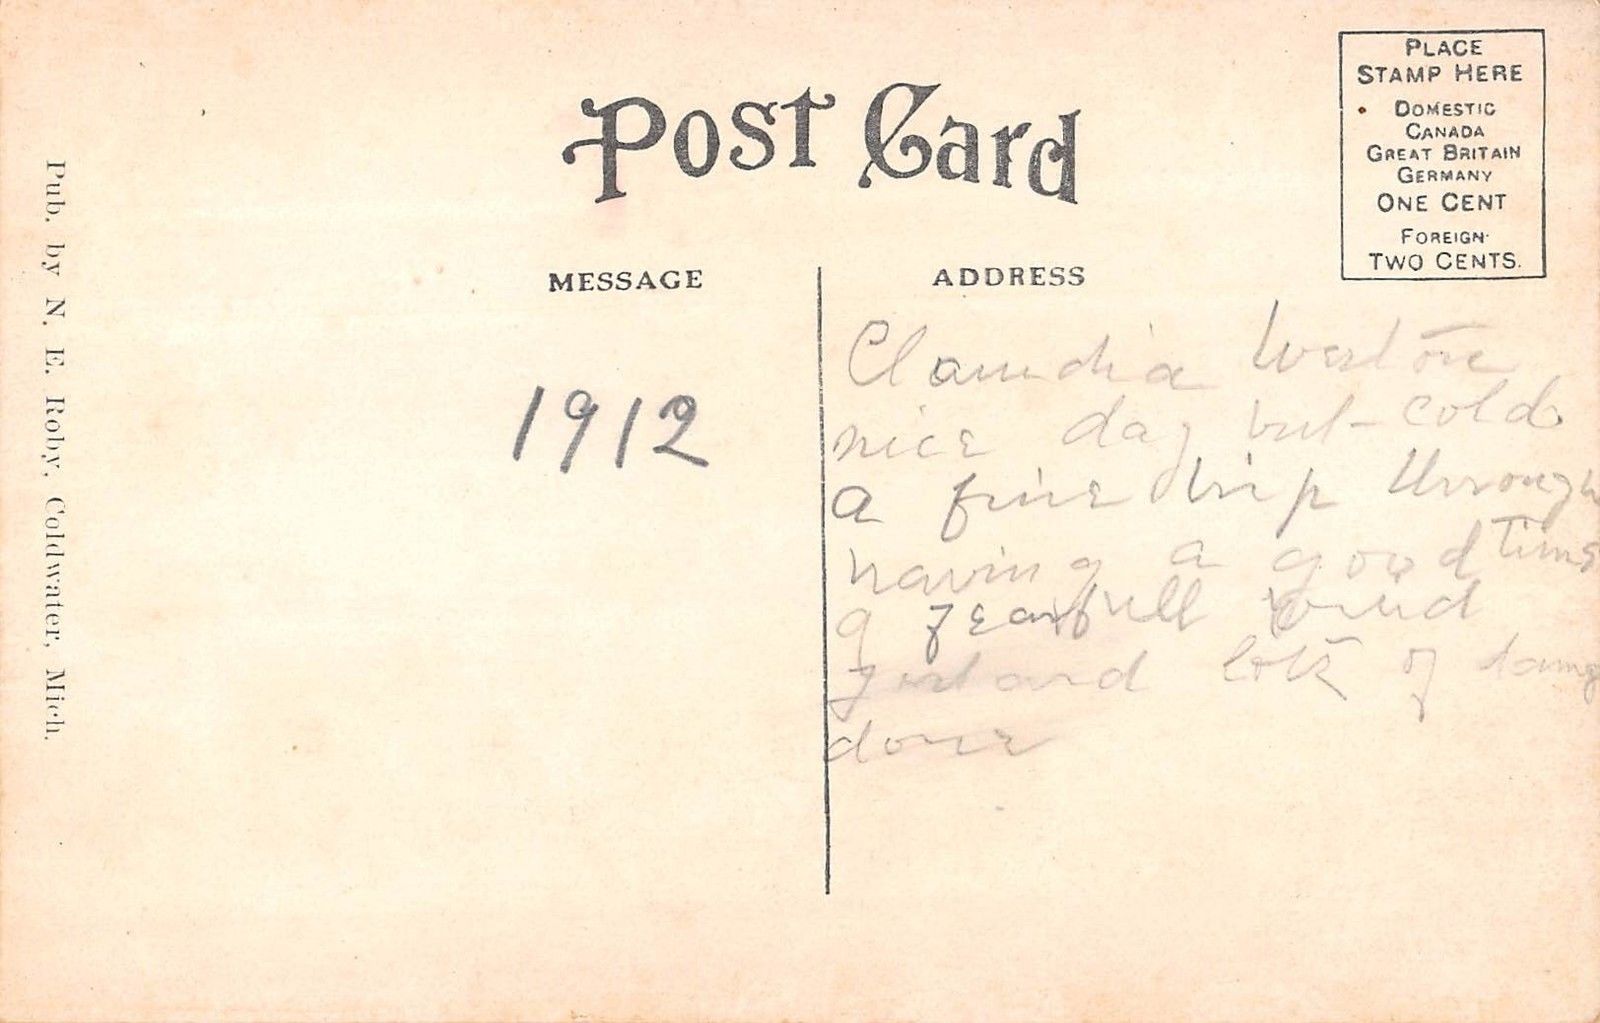 Post Card
PLACE
STAMP HERE
DOMESTIC
CANADA
GREAT BRITAIN
GERMANY
ONE CENT
FOREIGN
TWO CENTS.
Pub. by N. E. Roby, Coldwater, Mich.
MESSAGE
1912
ADDRESS
Claudia
nice day but cold
a fine trip through
having a good time
a fearfull wind
and lots of
done